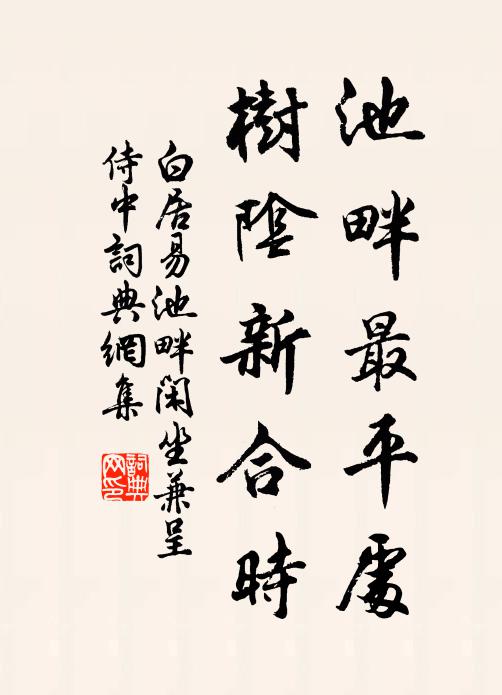 池畔最平處
樹陰新合時
白居易池畔閑坐兼呈
侍中詞典網集
詞典网印